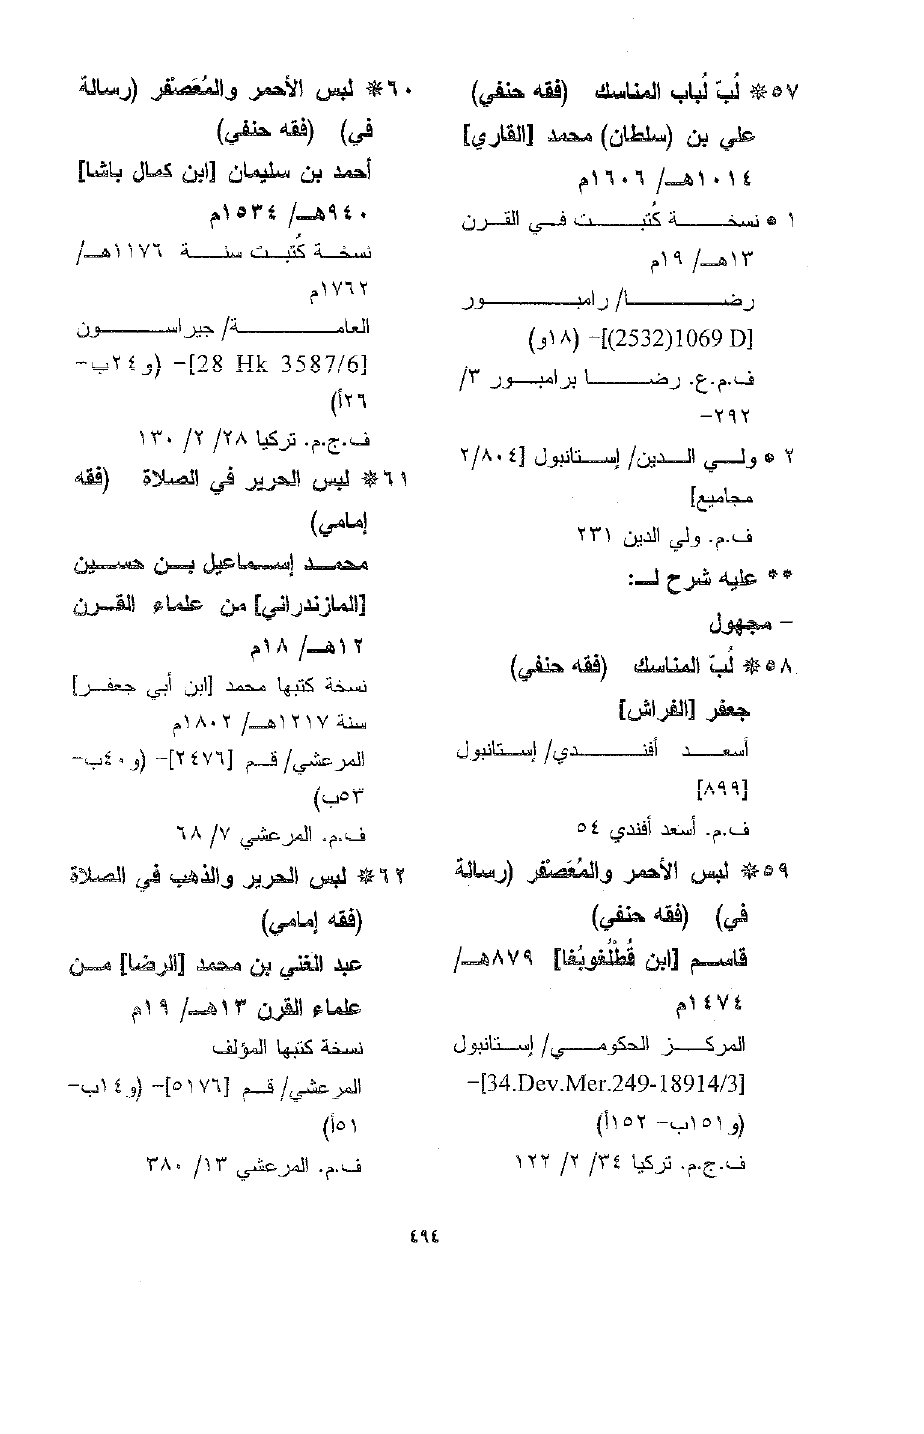 ٥٧* لُبّ لُباب المناسك (فقه حنفي)
علي بن (سلطان) محمد [القاري]
١٠١٤هـ/ ١٦٠٦م
١ * نسخة كُتبت في القرن
١٣هـ/ ١٩م
رضا/ رامبور
[1069 D(2532)]– (١٨و)
ف.م.ع. رضا برامبور ٣/
٢٩٢–
٢ * ولي الدين/ إستانبول [٢/٨٠٤
مجاميع]
ف.م. ولي الدين ٢٣١
** عليه شرح لـ:
– مجهول
٥٨* لُبّ المناسك (فقه حنفي)
جعفر [الفراش]
أسعد أفندي/ إستانبول
[٨٩٩]
ف.م. أسعد أفندي ٥٤
٥٩* لبس الأحمر والمُعَصْفر (رسالة
في) (فقه حنفي)
قاسم [ابن قُطْلُوبُغا] ٨٧٩هـ/
١٤٧٤م
المركز الحكومي/ إستانبول
[34.Dev.Mer.249-18914/3]–
(و١٥١ب– ١٥٢أ)
ف.ج.م. تركيا ٣٤/ ٢/ ١٢٢
٦٠* لبس الأحمر والمُعَصْفر (رسالة
في) (فقه حنفي)
أحمد بن سليمان [ابن كمال باشا]
٩٤٠هـ/ ١٥٣٤م
نسخة كُتبت سنة ١١٧٦هـ/
١٧٦٢م
العامة/ جيراسون
[28 Hk 3587/6]– (و٢٤ب–
٢٦أ)
ف.ج.م. تركيا ٢٨/ ٢/ ١٣٠
٦١* لبس الحرير في الصلاة (فقه
إمامي)
محمد إسماعيل بن حسين
[المازندراني] من علماء القرن
١٢هـ/ ١٨م
نسخة كتبها محمد [ابن أبي جعفر]
سنة ١٢١٧هـ/ ١٨٠٢م
المرعشي/ قم [٢٤٧٦]– (و٤٠ب–
٥٣ب)
ف.م. المرعشي ٧/ ٦٨
٦٢* لبس الحرير والذهب في الصلاة
(فقه إمامي)
عبد الغني بن محمد [الرضا] من
علماء القرن ١٣هـ/ ١٩م
نسخة كتبها المؤلف
المرعشي/ قم [٥١٧٦]– (و١٤ب–
٥١أ)
ف.م. المرعشي ١٣/ ٣٨٠
٤٩٤